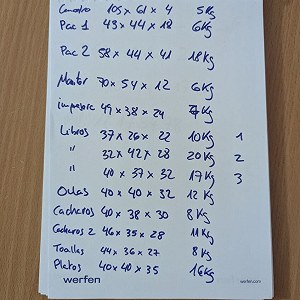 Cuadro 105 x 61 x 4 5 Kg
Pac 1 43 x 44 x 12 6 Kg
Pac 2 58 x 44 x 41 18 Kg
70 x 54 x 12 6 Kg
49 x 38 x 24 Kg
Libros 37 x 26 x 22 10 Kg 1
" 32 x 42 x 28 20 Kg 2
" 40 x 37 x 32 17 Kg 3
Ollas 40 x 40 x 32 12 Kg
Cacharos 40 x 38 x 30 8 Kg
Cacharos 2 46 x 35 x 28 11 Kg
Toallas 44 x 36 x 27 8 Kg
Platos 40 x 40 x 35 16 Kg
werfen werfen.com